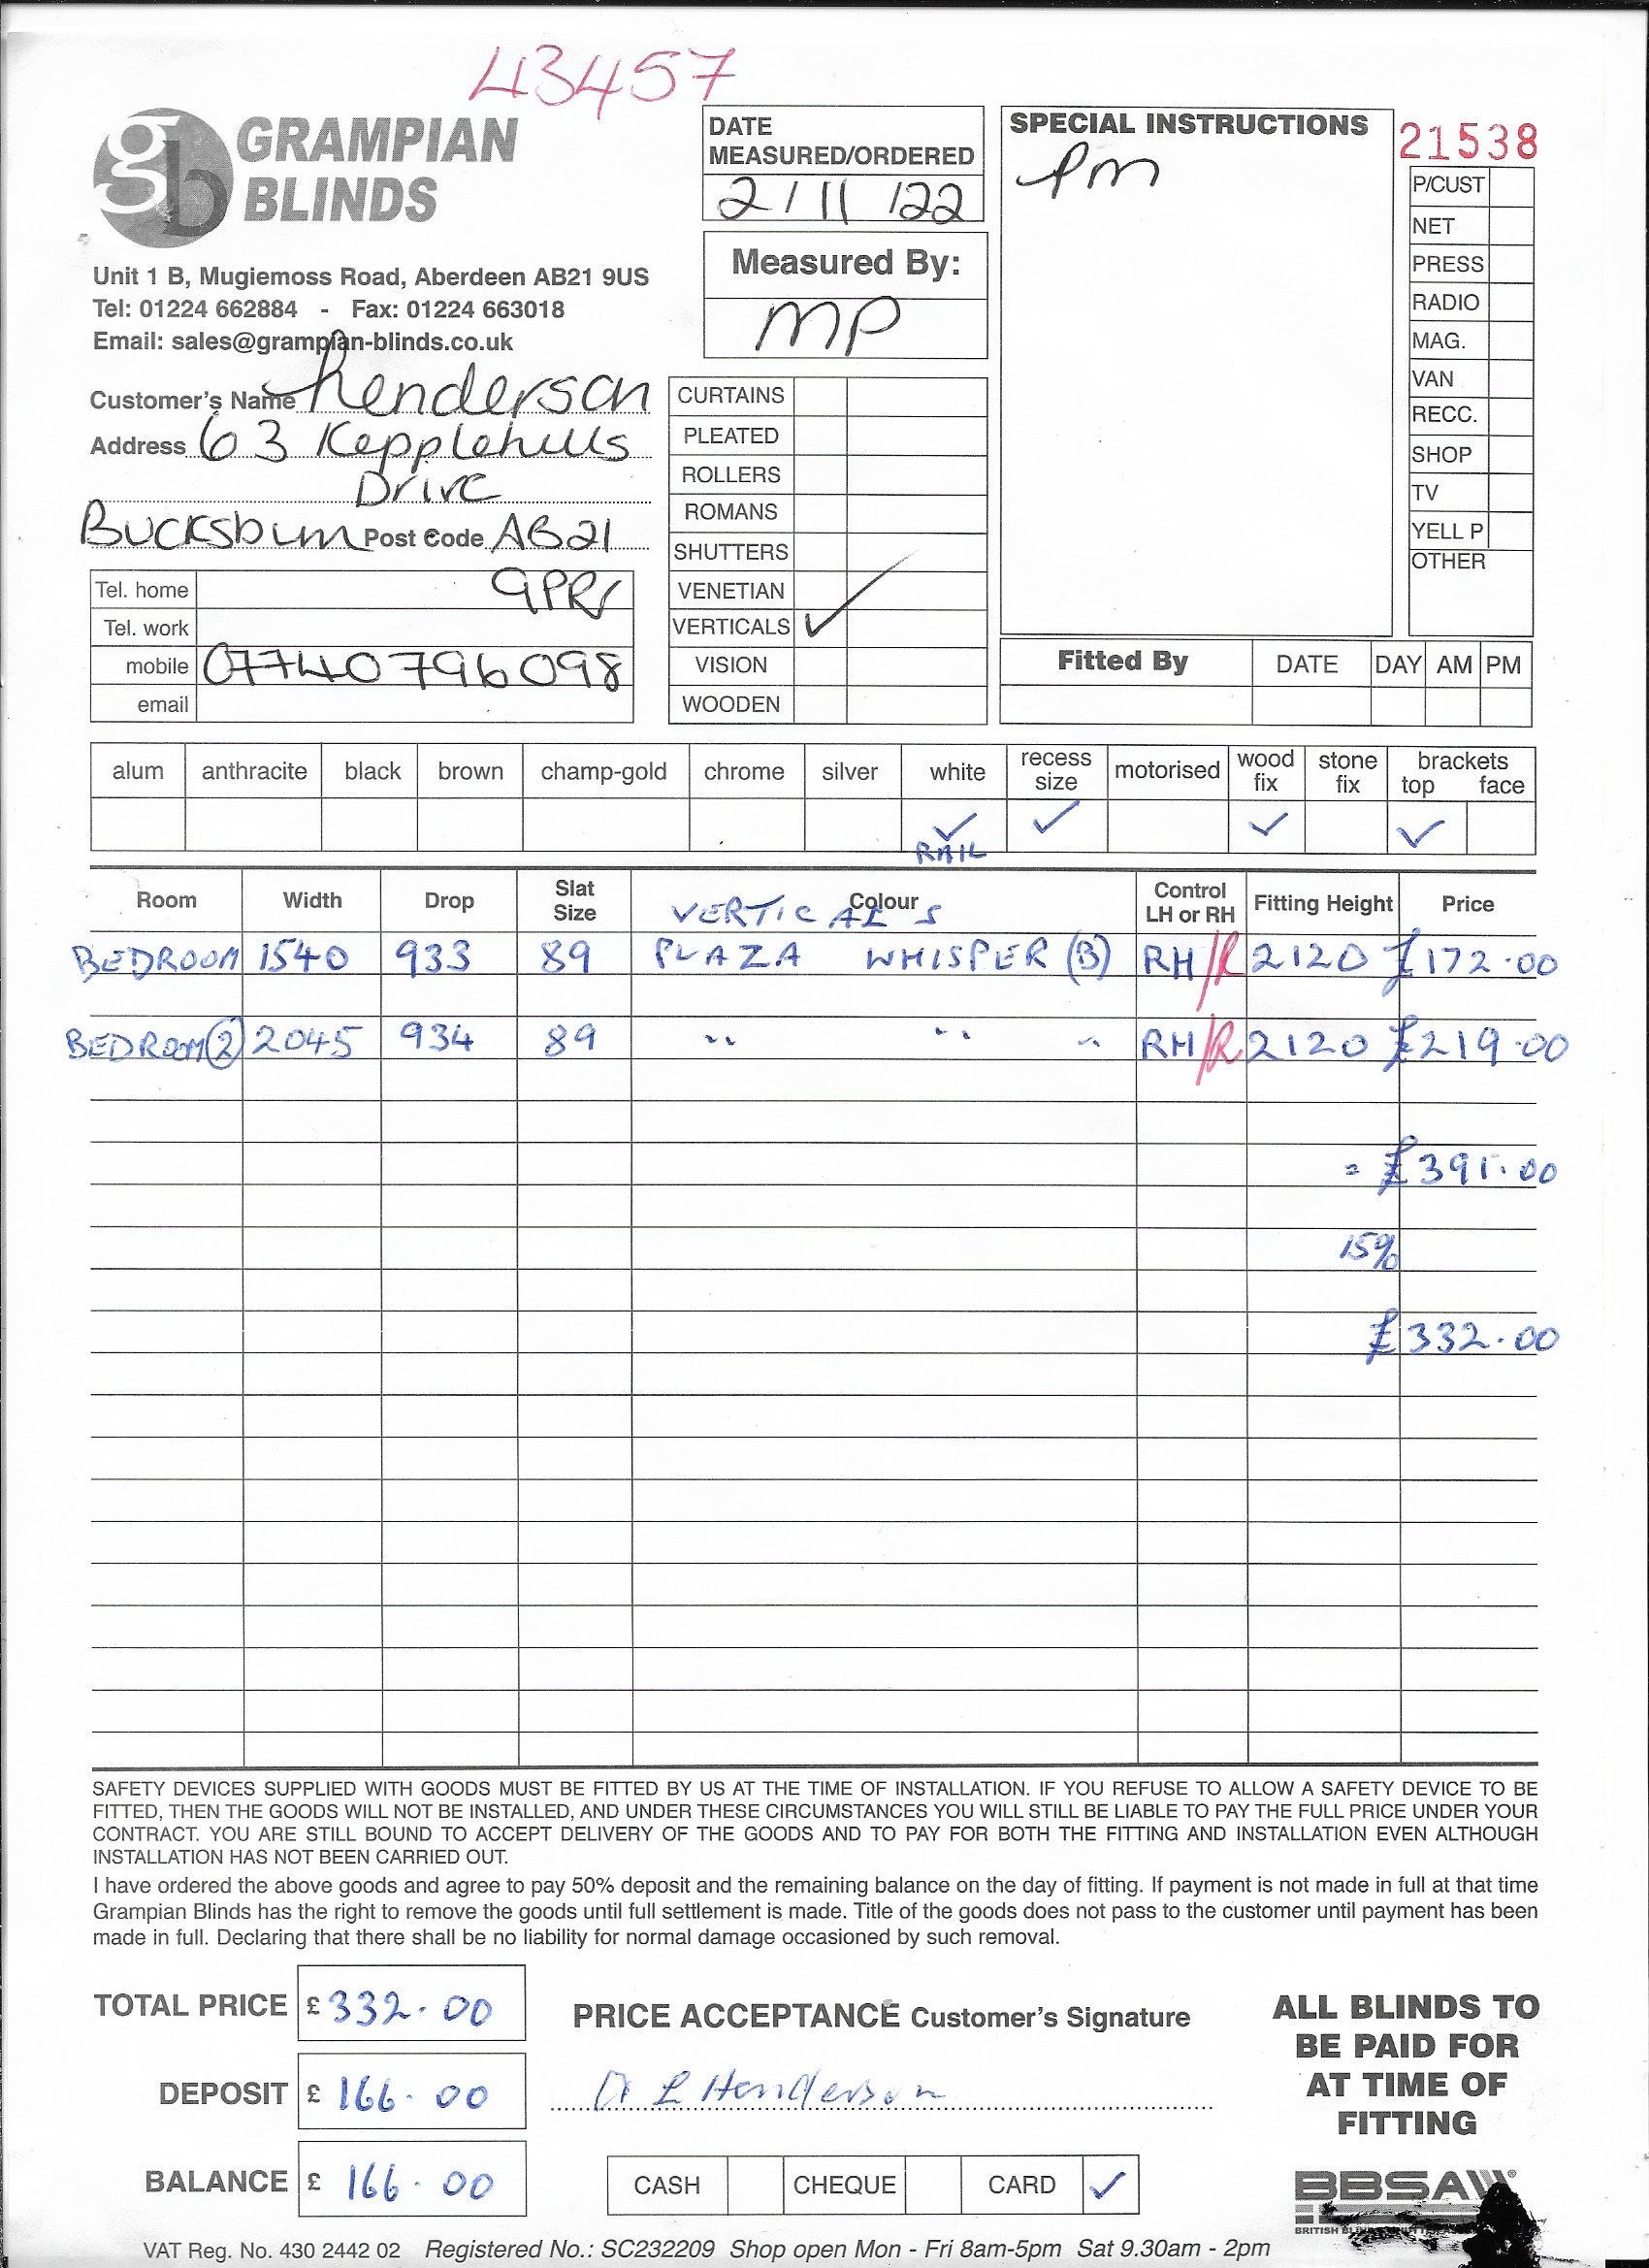 43457
GRAMPIAN
BLINDS
Unit 1 B, Mugiemoss Road, Aberdeen AB21 9US
Tel: 01224 662884 - Fax: 01224 663018
Email: sales@grampian-blinds.co.uk
Customer's Name henderson
Address 63 Kepplehills
Drive
Bucksburn Post Code AB21
9PR
Tel. home
Tel. work
mobile 07740796098
email
DATE
MEASURED/ORDERED
2/11/22
Measured By:
MP
CURTAINS
PLEATED
ROLLERS
ROMANS
SHUTTERS
VENETIAN
VERTICALS ✓
VISION
WOODEN
SPECIAL INSTRUCTIONS
pm
21538
P/CUST
NET
PRESS
RADIO
MAG.
VAN
RECC.
SHOP
TV
YELL P
OTHER
Fitted By DATE DAY AM PM
alum anthracite black brown champ-gold chrome silver white recess size motorised wood fix stone fix brackets top face
✓ ✓ ✓ ✓
RAIL
Room Width Drop Slat Size Colour Control LH or RH Fitting Height Price
VERTICALS
BEDROOM 1540 933 89 PLAZA WHISPER (B) RH/R 2120 £172.00
BEDROOM 2 2045 934 89 " " " RH/R 2120 £219.00
= £391.00
15%
£332.00
SAFETY DEVICES SUPPLIED WITH GOODS MUST BE FITTED BY US AT THE TIME OF INSTALLATION. IF YOU REFUSE TO ALLOW A SAFETY DEVICE TO BE
FITTED, THEN THE GOODS WILL NOT BE INSTALLED, AND UNDER THESE CIRCUMSTANCES YOU WILL STILL BE LIABLE TO PAY THE FULL PRICE UNDER YOUR
CONTRACT. YOU ARE STILL BOUND TO ACCEPT DELIVERY OF THE GOODS AND TO PAY FOR BOTH THE FITTING AND INSTALLATION EVEN ALTHOUGH
INSTALLATION HAS NOT BEEN CARRIED OUT.
I have ordered the above goods and agree to pay 50% deposit and the remaining balance on the day of fitting. If payment is not made in full at that time
Grampian Blinds has the right to remove the goods until full settlement is made. Title of the goods does not pass to the customer until payment has been
made in full. Declaring that there shall be no liability for normal damage occasioned by such removal.
TOTAL PRICE £ 332.00
DEPOSIT £ 166.00
BALANCE £ 166.00
PRICE ACCEPTANCE Customer's Signature
L Henderson
CASH CHEQUE CARD ✓
ALL BLINDS TO
BE PAID FOR
AT TIME OF
FITTING
BBSA
BRITISH
VAT Reg. No. 430 2442 02 Registered No.: SC232209 Shop open Mon - Fri 8am-5pm Sat 9.30am - 2pm